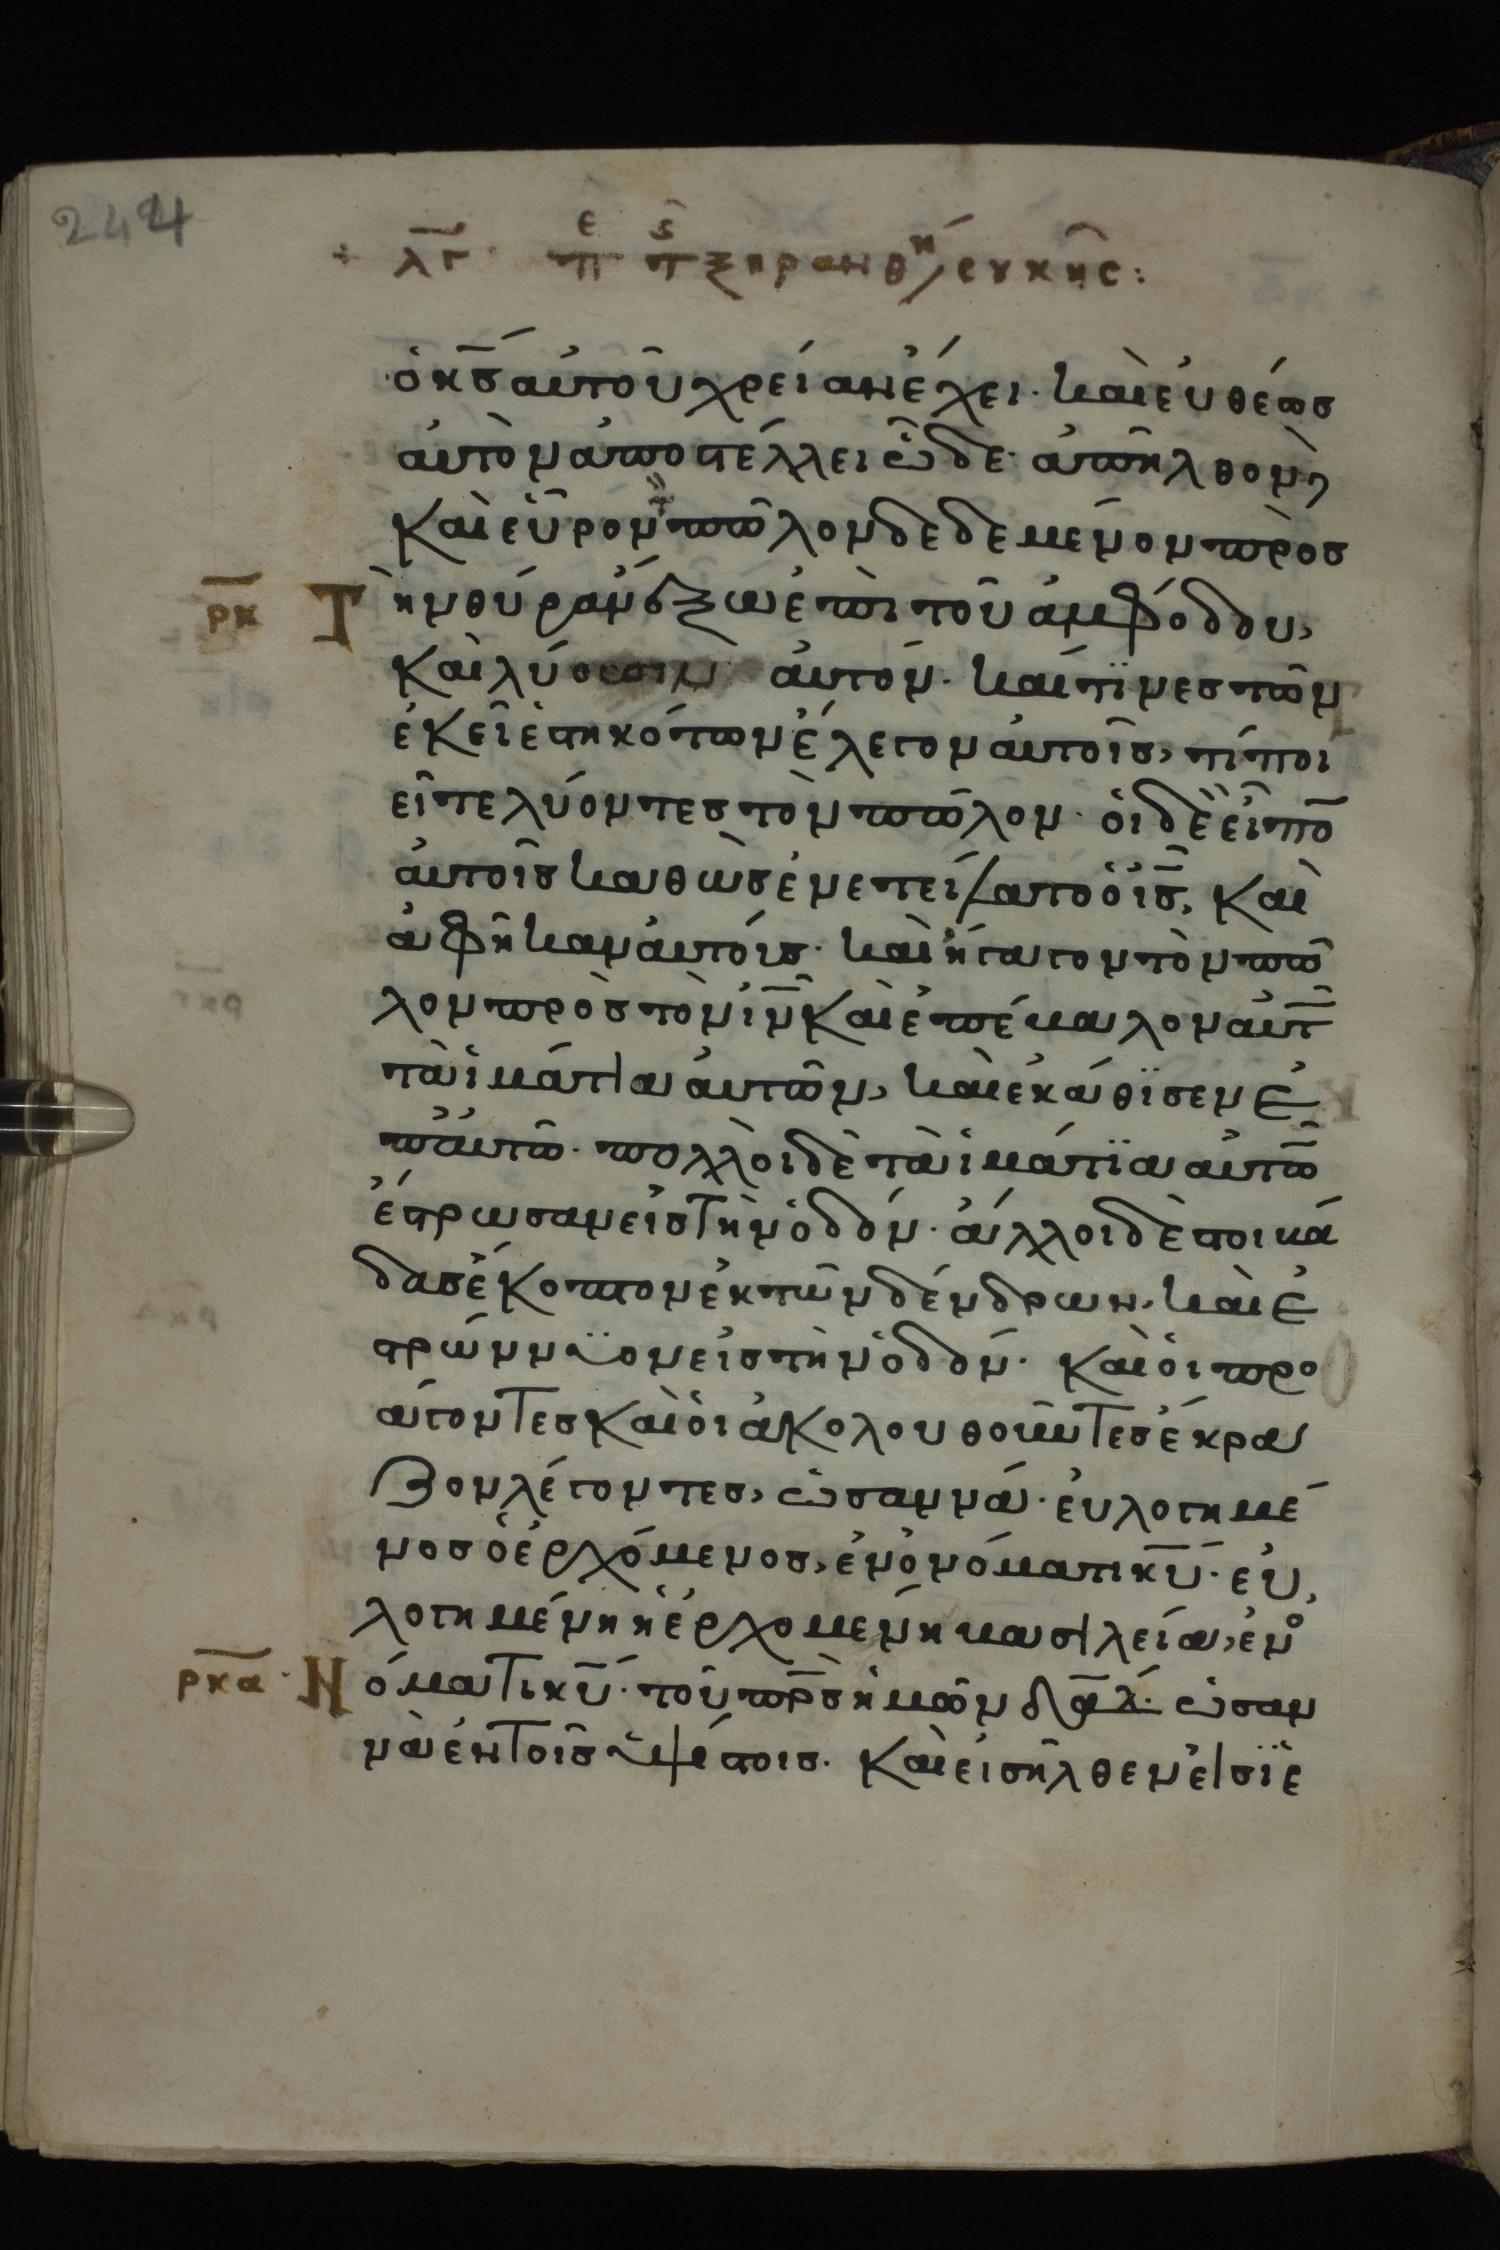 244
+ λγ· πε τς ξηρανθή συκῆς:
ὁ κς αὐτοῦ χρείαν ἔχει· καὶ εὐθέως
αὐτὸν ἀποστέλλει ὧδε· ἀπῆλθον,
καὶ εὗρον πῶλον δεδεμένον πρὸς
ρκ Τὴν θύραν ἔξω ἐπὶ τοῦ ἀμφόδου,
καὶ λύουσιν αὐτόν· καί τϊνες τῶν
ἐκεῖ ἑστηκότων ἔλεγον αὐτοῖς, τί ποι
εῖτε λύοντες τὸν πῶλον· οἱ δὲ εἶπο
αὐτοῖς καθὼς ἐνετείλατο ὁ ις, καὶ
ἀφῆκαν αὐτούς· καὶ ἤγαγον τὸν πῶ
λον πρὸς τὸν ιν καὶ ἐπέβαλον αὐτ
τὰ ἱμάτια αὐτῶν, καὶ ἐκάθϊσεν ἐ
π αὐτῶ· πολλοὶ δὲ τὰ ἱμάτϊα αὐτῶ
ἔστρωσαν εἰς τὴν ὁδόν· ἄλλοι δὲ στοιβά
δας ἔκοπτον ἐκ τῶν δένδρων· καὶ ἐ
στρώννϋον εἰς τὴν ὁδόν· καὶ οἱ προ
άγοντες καὶ οἱ ἀκολουθοῦντες ἔκρα
ζον λέγοντες, ὡσαννά· εὐλογημέ
νος ὁ ἐρχόμενος, ἐν ὀνόματι κυ· εὐ
λογημένη ἡ ἐρχομένη βασιλεία, ἐν ὀ
ρκα· Νόματι κυ· τοῦ πρς ἡμῶν δαδ· ὡσαν
νὰ ἐν τοῖς ὑψίστοις· καὶ εἰσῆλθεν εἰς ϊε